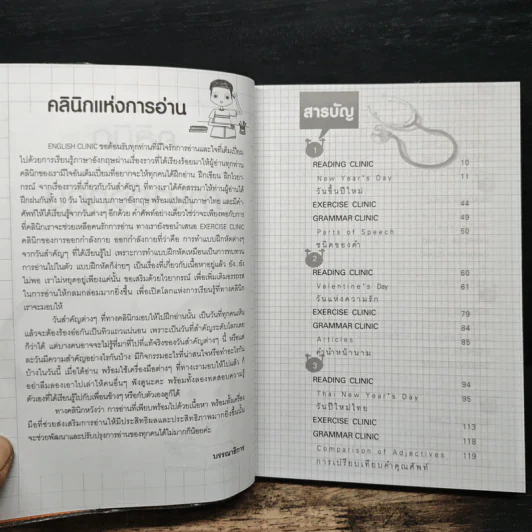 คลินิกแห่งการอ่าน
ENGLISH CLINIC ขอต้อนรับทุกท่านที่มีใจรักการอ่านและใจที่เต็มเปี่ยม
ไปด้วยการเรียนรู้ภาษาอังกฤษผ่านเรื่องราวที่ได้เรียงร้อยมาให้ผู้อ่านทุกท่าน
คลินิกของเรามีใจอันเต็มเปี่ยมที่อยากจะให้ทุกคนได้ฝึกอ่าน ฝึกเขียน ฝึกไวยา
กรณ์ จากเรื่องราวที่เกี่ยวกับวันสำคัญๆ ที่ทางเราได้คัดสรรมาให้ท่านผู้อ่านได้
ฝึกฝนกันทั้ง 10 วัน ในรูปแบบภาษาอังกฤษ พร้อมแปลเป็นภาษาไทย และมีคำ
ศัพท์ให้ได้เรียนรู้จากวันต่างๆ อีกด้วย คำศัพท์อย่างเดียวใช่ว่าจะเพียงพอกับการ
ที่คลินิกเราจะช่วยเหลือคนรักการอ่าน ทางเรายังขอนำเสนอ EXERCISE CLINIC
คลินิกของการออกกำลังกาย ออกกำลังกายที่ว่าคือ การทำแบบฝึกหัดต่างๆ
จากวันสำคัญๆ ที่ได้เรียนรู้ไป เพราะการทำแบบฝึกหัดเหมือนเป็นการทบทวน
การอ่านไปในตัว แบบฝึกหัดก็ง่ายๆ เป็นเรื่องที่เกี่ยวกับเนื้อหาอยู่แล้ว ยัง..ยัง
ไม่พอ เราไม่หยุดอยู่เพียงแค่นั้น ขอเสริมด้วยไวยากรณ์ เพื่อเพิ่มเติมอรรถรส
ในการอ่านให้กลมกล่อมมากยิ่งขึ้น เพื่อเปิดโลกแห่งการเรียนรู้ที่ทางคลินิก
เราจะมอบให้
วันสำคัญต่างๆ ที่ทางคลินิกมอบให้ไปฝึกอ่านนั้น เป็นวันที่ทุกคนเห็น
แล้วจะต้องร้องอ๋อกันเป็นทิวแถวแน่นอน เพราะเป็นวันที่สำคัญระดับโลกเลย
ก็ว่าได้ แต่บางคนอาจจะไม่รู้ที่มาที่ไปที่แท้จริงของวันสำคัญต่างๆ นี้ หรือแต่
ละวันมีความสำคัญอย่างไรกันบ้าง มีกิจกรรมอะไรที่น่าสนใจหรือทำอะไรกัน
บ้างในวันนี้ เมื่อได้อ่าน พร้อมใช้เครื่องมือต่างๆ ที่ทางเรามอบให้ไปแล้ว ก็
อย่าลืมลองเอาไปเล่าให้คนอื่นๆ ฟังดูนะคะ พร้อมทั้งลองทดสอบความรู้
ตัวเองที่ได้เรียนรู้ไปกับเพื่อนข้างๆ หรือกับตัวเองดูก็ได้
ทางคลินิกหวังว่า การอ่านที่เพียบพร้อมไปด้วยเนื้อหา พร้อมทั้งเครื่อง
มือที่ช่วยส่งเสริมการอ่านให้มีประสิทธิผลและประสิทธิภาพมากยิ่งขึ้นนั้น
จะช่วยพัฒนาและปรับปรุงการอ่านของทุกคนได้ไม่มากก็น้อยค่ะ
บรรณาธิการ
สารบัญ
1
READING CLINIC 10
New Year's Day 11
วันขึ้นปีใหม่
EXERCISE CLINIC 44
GRAMMAR CLINIC 49
Parts of Speech 50
ชนิดของคำ
2
READING CLINIC 60
Valentine's Day 61
วันแห่งความรัก
EXERCISE CLINIC 79
GRAMMAR CLINIC 84
Articles 85
คำนำหน้านาม
3
READING CLINIC 94
Thai New Year's Day 95
วันปีใหม่ไทย
EXERCISE CLINIC 113
GRAMMAR CLINIC 118
Comparison of Adjectives 119
การเปรียบเทียบคำคุณศัพท์